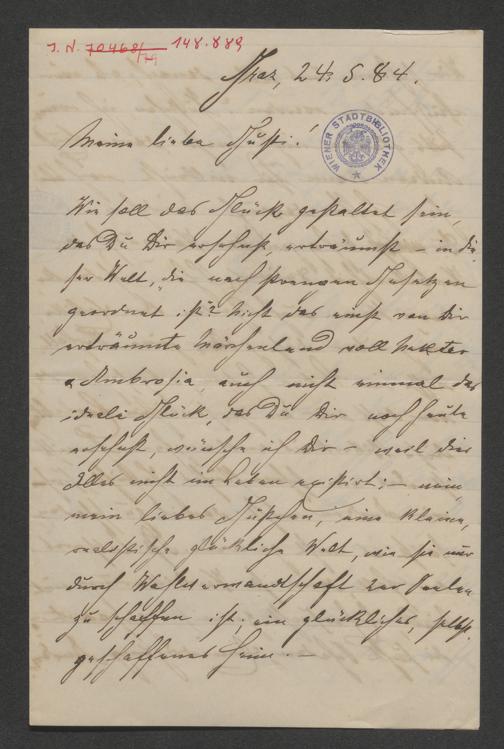 J. N. 70468/79 148.889
Graz, 24. 5. 84.
WIENER STADTBIBLIOTHEK
Meine liebe Gusti!
Wie soll das Glück gestaltet sein,
das Du Dir erhofst, erträumst – in die
ser Welt, die nach strengen Gesetzen
geordnet ist? Nicht das einst von Dir
erträumte Märchenland voll Nektar
& Ambrosia, auch nicht einmal das
ideele Glück, das Du Dir noch heute
erhofst, wünsche ich Dir – weil dies
Alles nicht im Leben existirt; – nein
mein liebes Gustchen, eine kleine,
realistische glückliche Welt, wie sie nur
durch Wahlverwandtschaft der Seelen
zu schaffen ist; ein glückliches, selbst
geschaffenes Heim. –